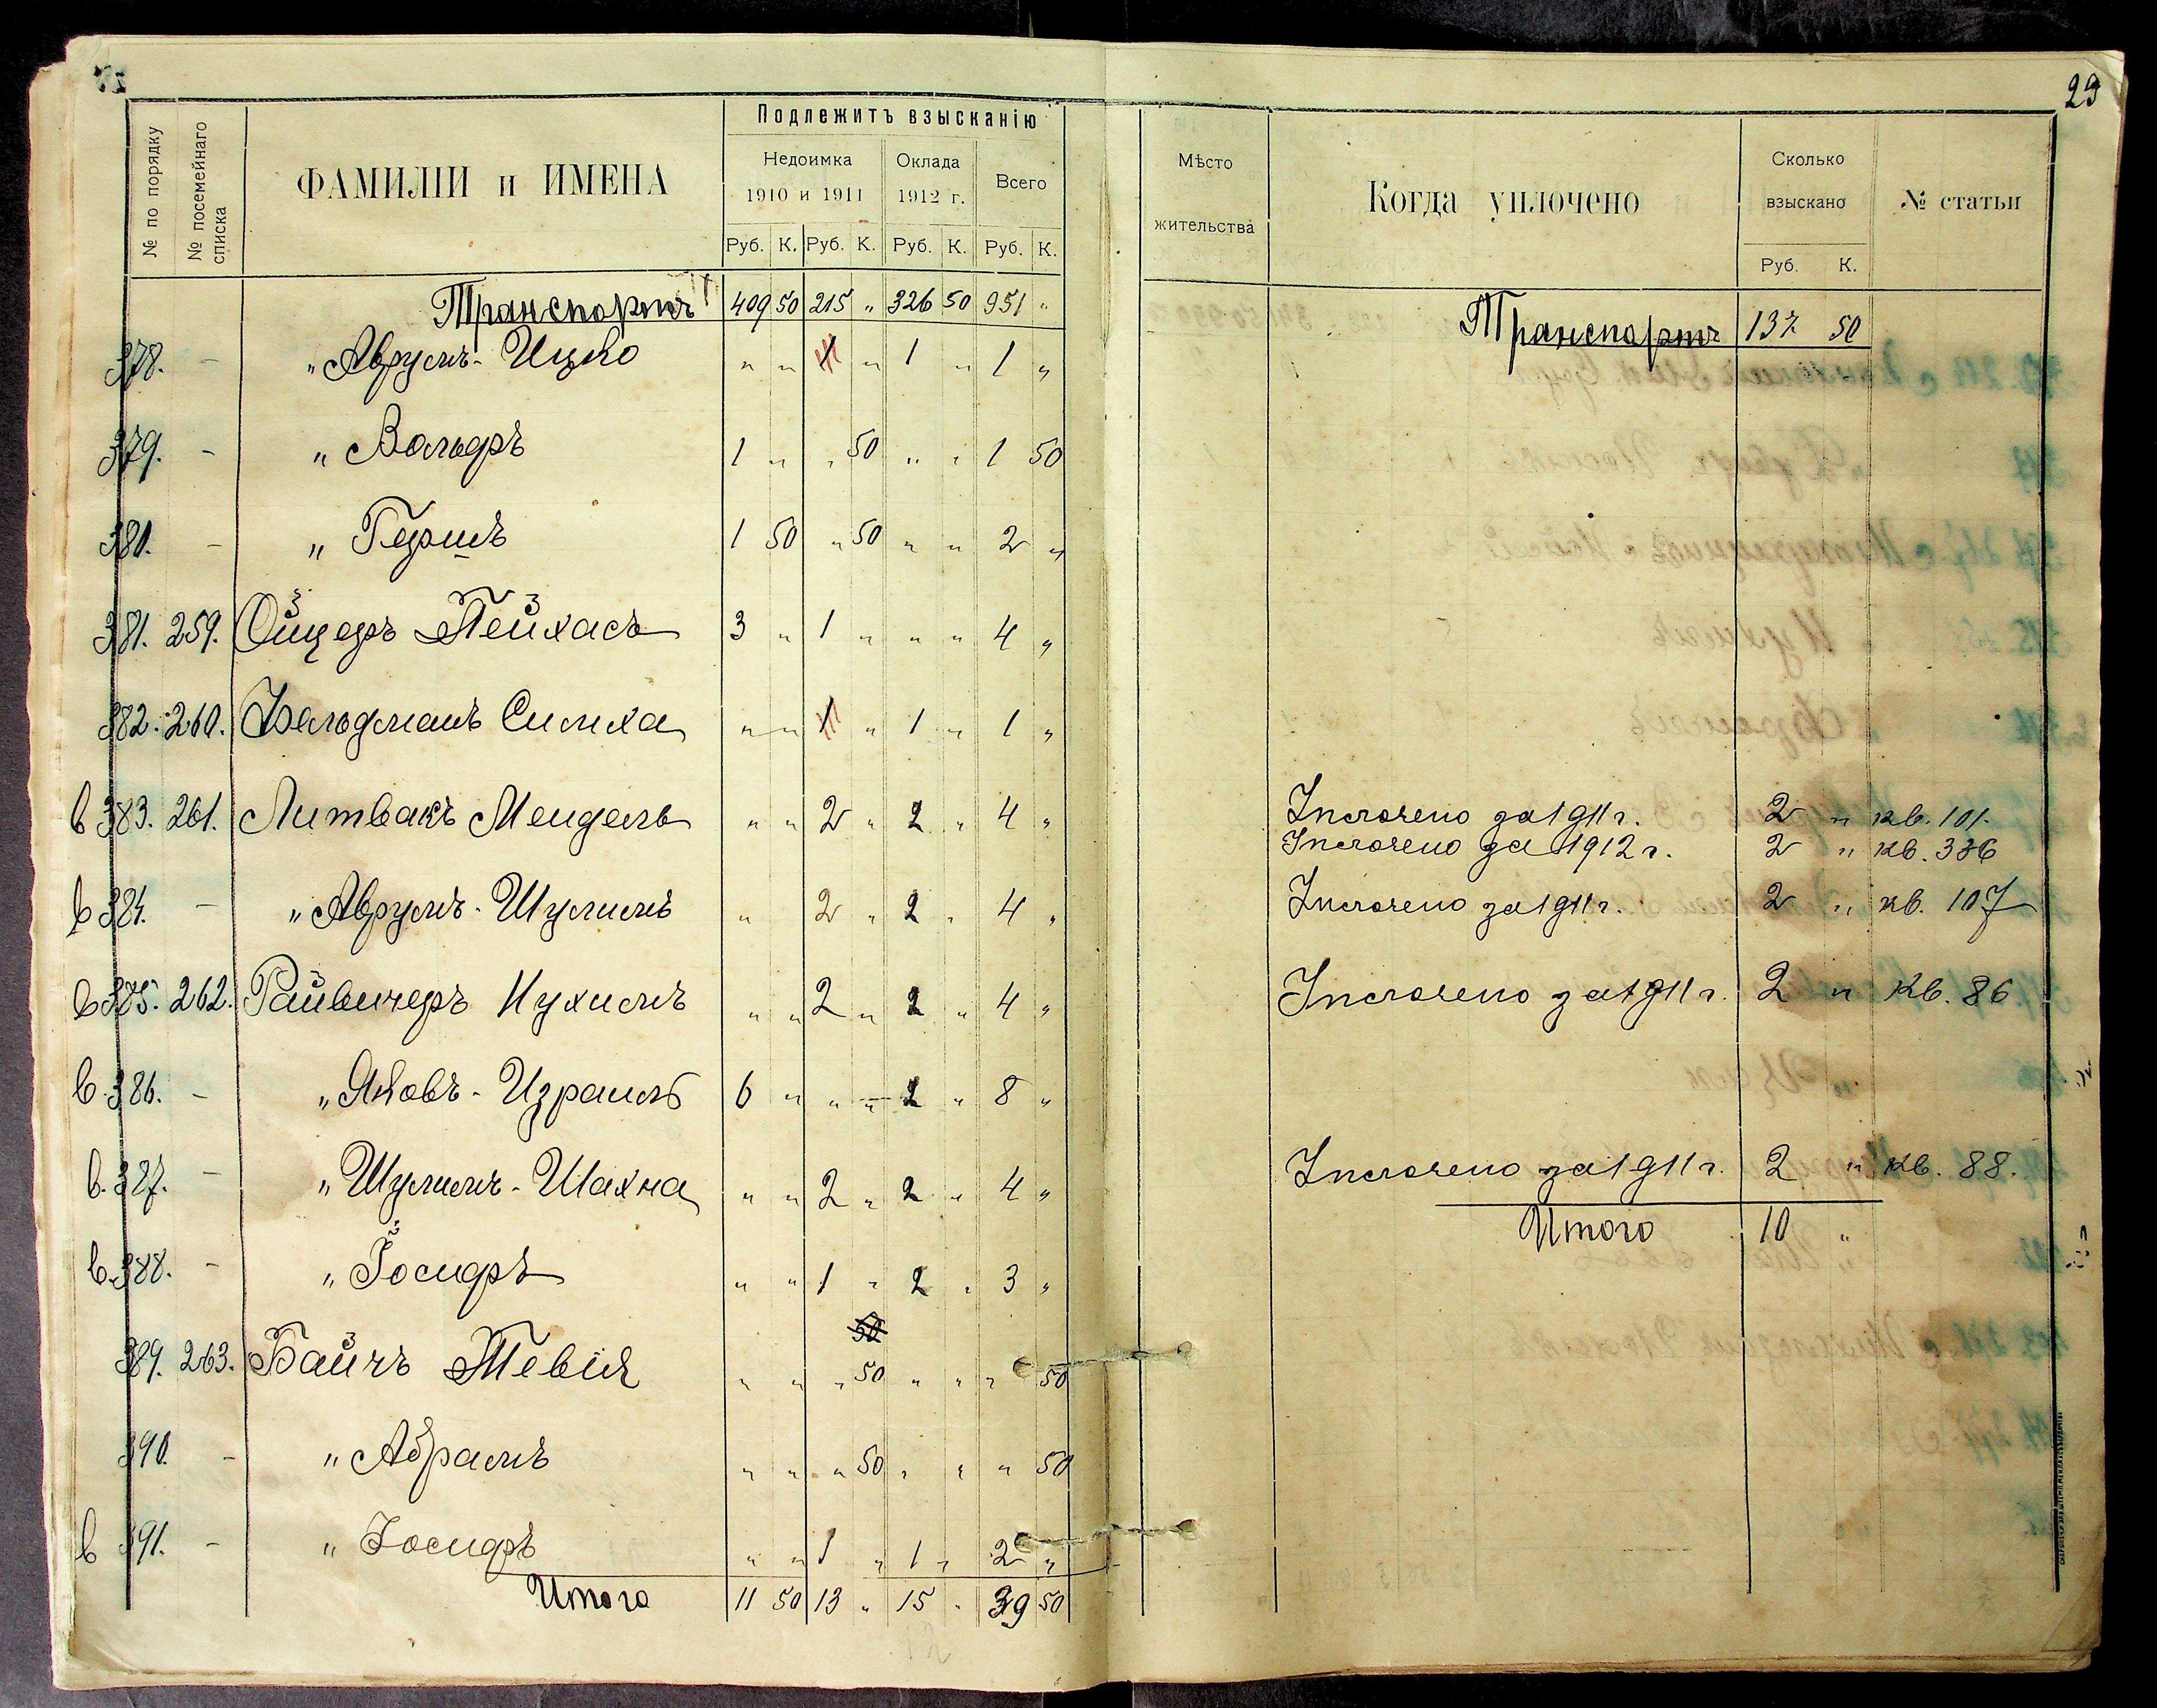 29
№ по порядку
№ посемейнаго списка
ФАМИЛІИ и ИМЕНА
Подлежитъ взысканію
Недоимка
1910 и 1911
Оклада
1912 г.
Всего
Руб. К. Руб. К. Руб. К. Руб. К.
Мѣсто
жительства
Когда уплочено
Сколько
взыскано
Руб. К.
№ статьи
Транспортъ 409 50 215 " 326 50 951 "
Транспортъ 137 50
378. - " Аврумъ-Ицко " " 1 " 1 " 1 "
379. - " Вольфъ 1 " " 50 " " 1 50
380. - " Гершъ 1 50 " 50 " " 2 "
381. 259. Ойцеръ Пейхасъ 3 " 1 " " " 4 "
382. 260. Фельдманъ Симха " " 1 " 1 " 1 "
в 383. 261. Литвакъ Мендель " " 2 " 2 " 4 "
Уплочено за 1911 г. 2 " кв. 101.
Уплочено за 1912 г. 2 " кв. 336
в 384. - " Аврумъ-Шулимъ " 2 " 2 " 4 "
Уплочено за 1911 г. 2 " кв. 107
в 385. 262. Райвичеръ Нухимъ " " 2 " 2 " 4 "
Уплочено за 1911 г. 2 " кв. 86
в. 386. - " Яковъ-Израиль 6 " " " 2 " 8 "
в. 387. - " Шулимъ-Шахна " " 2 " 2 " 4 "
Уплочено за 1911 г. 2 " кв. 88.
Итого 10 "
в. 388. - " Іосифъ " " 1 " 2 " 3 "
50
389. 263. Байчъ Тевія " " " 50 " " " 50
390. - " Абрамъ " " " 50 " " " 50
в 391. - " Іосифъ " " 1 " 1 " 2 "
Итого 11 50 13 " 15 " 39 50